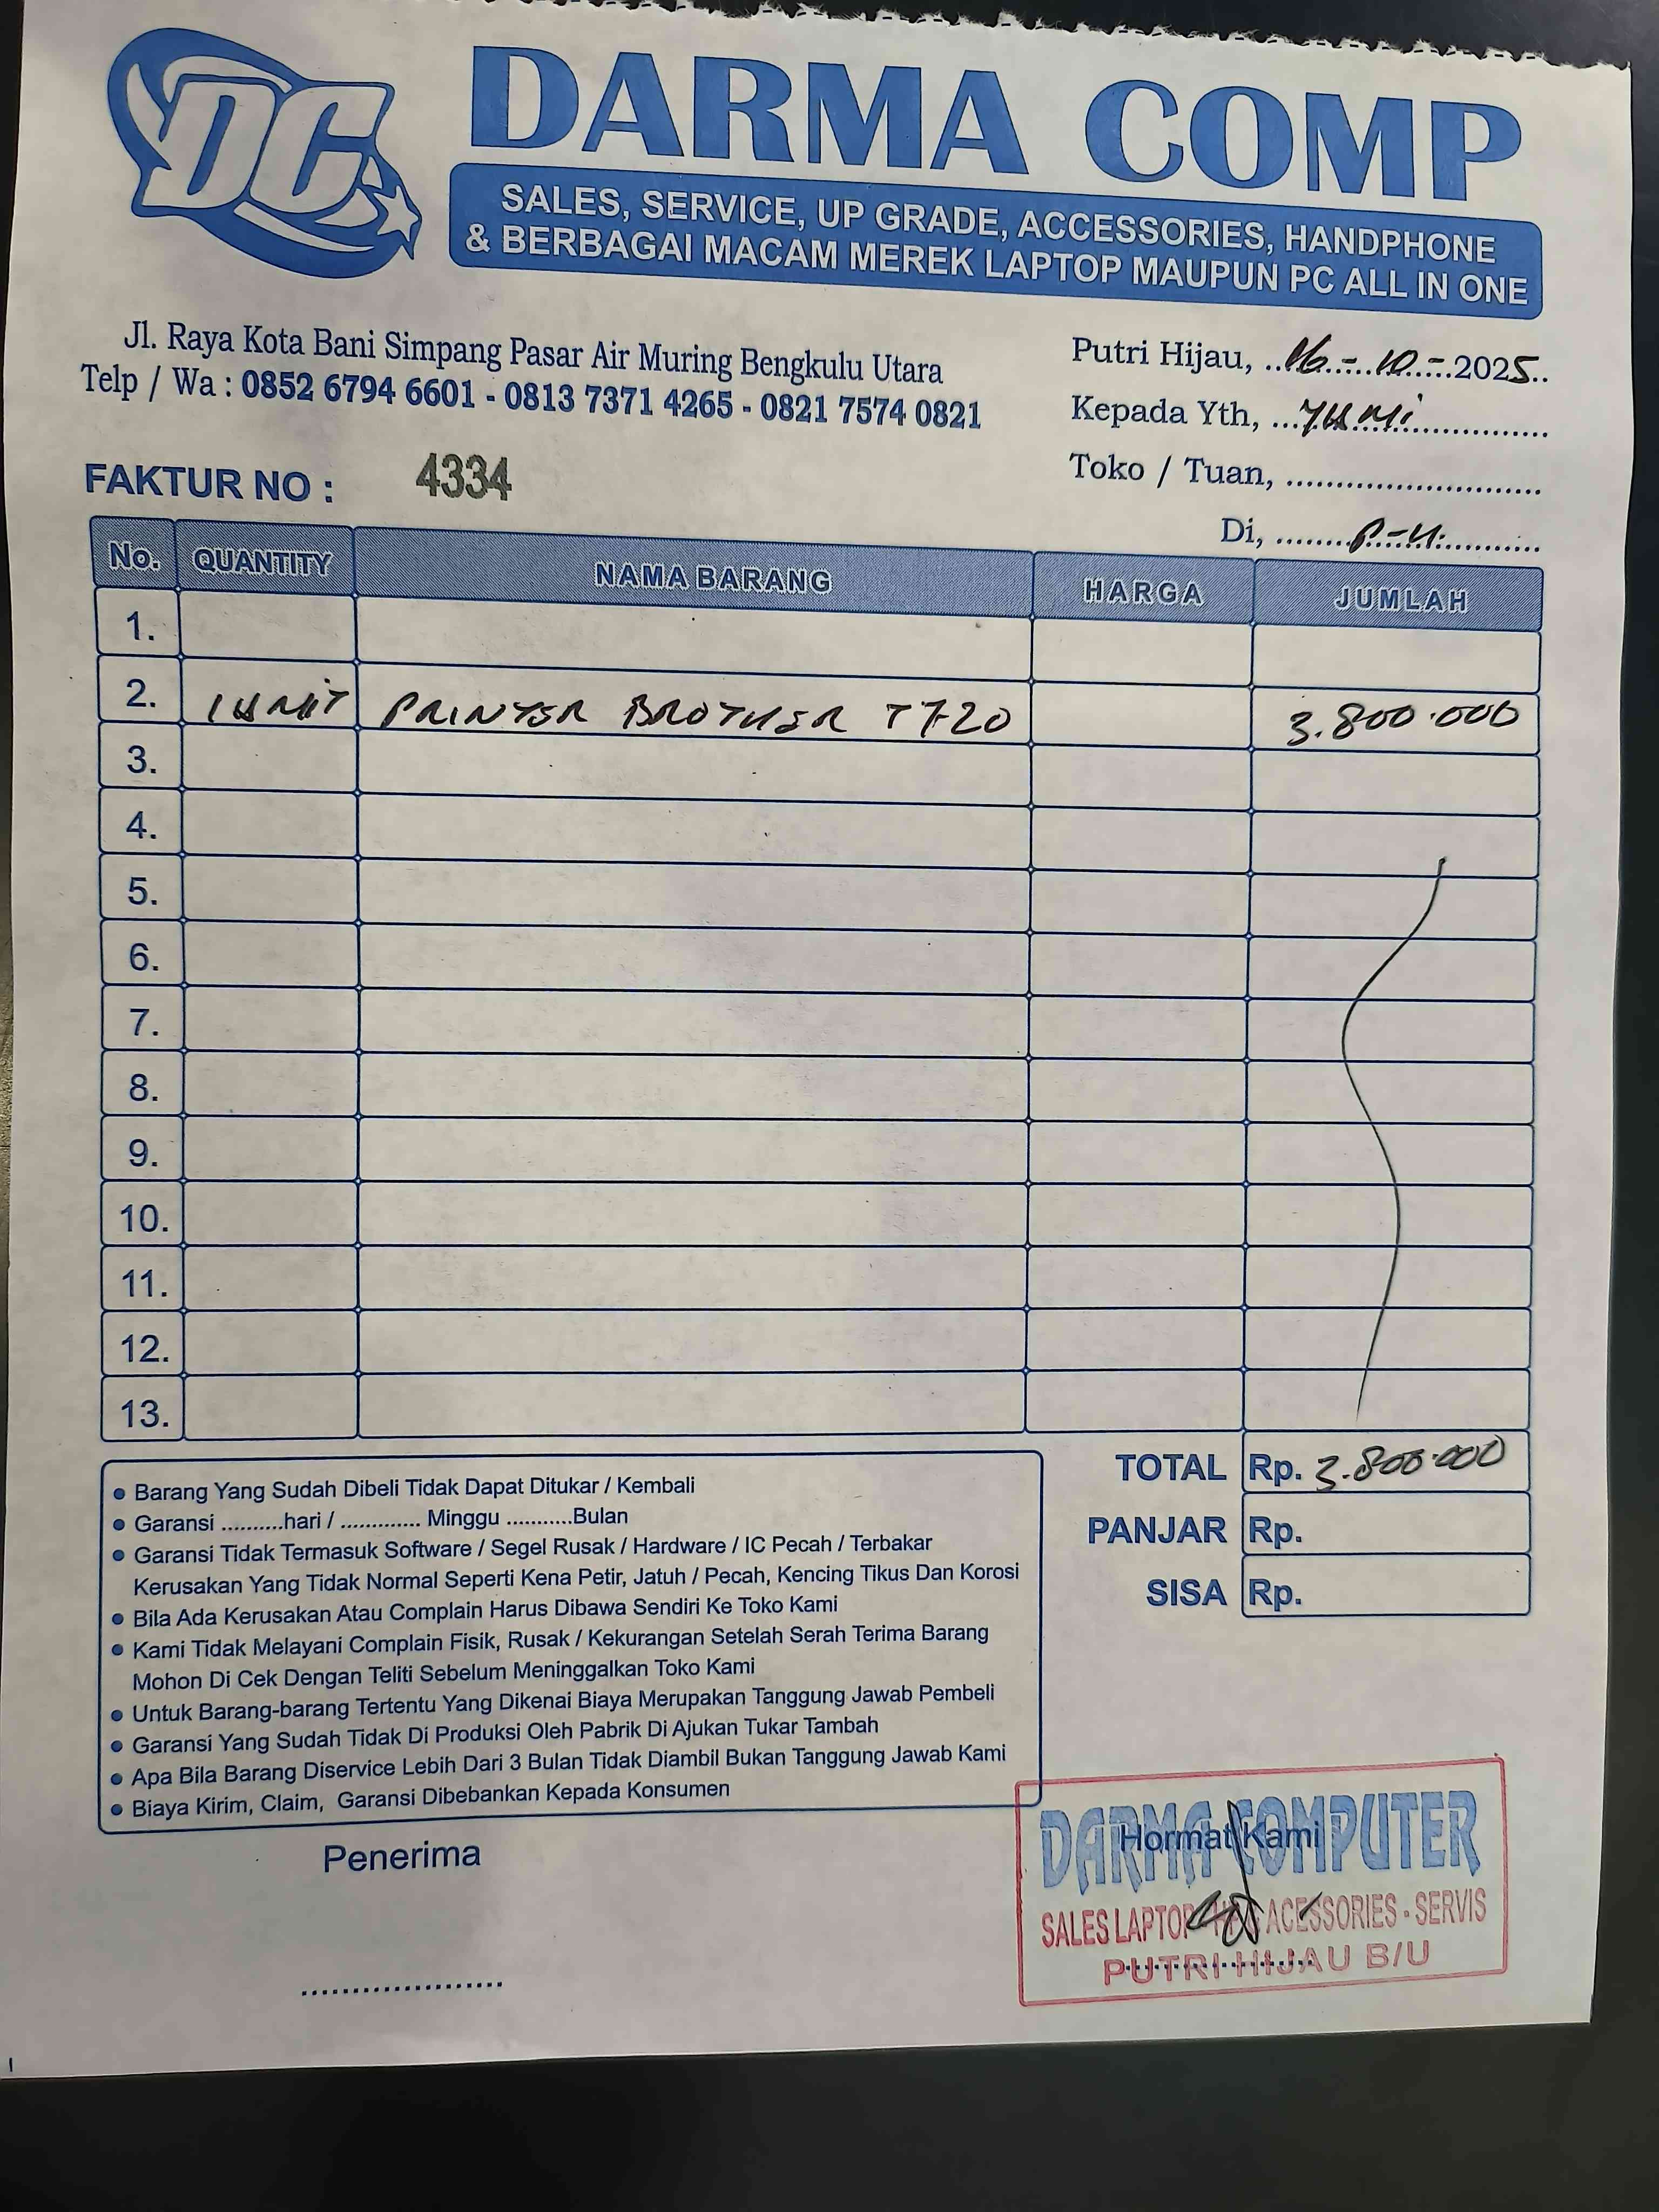 DC
DARMA COMP
SALES, SERVICE, UP GRADE, ACCESSORIES, HANDPHONE
& BERBAGAI MACAM MEREK LAPTOP MAUPUN PC ALL IN ONE
Jl. Raya Kota Bani Simpang Pasar Air Muring Bengkulu Utara
Telp / Wa : 0852 6794 6601 - 0813 7371 4265 - 0821 7574 0821
Putri Hijau, 16 - 10 - 2025
Kepada Yth, YUMI
Toko / Tuan,
Di, P-H.
FAKTUR NO : 4334
No. QUANTITY NAMA BARANG HARGA JUMLAH
1.
2. 1 UNIT PRINTER BROTHER T720 3.800.000
3.
4.
5.
6.
7.
8.
9.
10.
11.
12.
13.
TOTAL Rp. 3.800.000
PANJAR Rp.
SISA Rp.
• Barang Yang Sudah Dibeli Tidak Dapat Ditukar / Kembali
• Garansi ..........hari / ............. Minggu ...........Bulan
• Garansi Tidak Termasuk Software / Segel Rusak / Hardware / IC Pecah / Terbakar
Kerusakan Yang Tidak Normal Seperti Kena Petir, Jatuh / Pecah, Kencing Tikus Dan Korosi
• Bila Ada Kerusakan Atau Complain Harus Dibawa Sendiri Ke Toko Kami
• Kami Tidak Melayani Complain Fisik, Rusak / Kekurangan Setelah Serah Terima Barang
Mohon Di Cek Dengan Teliti Sebelum Meninggalkan Toko Kami
• Untuk Barang-barang Tertentu Yang Dikenai Biaya Merupakan Tanggung Jawab Pembeli
• Garansi Yang Sudah Tidak Di Produksi Oleh Pabrik Di Ajukan Tukar Tambah
• Apa Bila Barang Diservice Lebih Dari 3 Bulan Tidak Diambil Bukan Tanggung Jawab Kami
• Biaya Kirim, Claim, Garansi Dibebankan Kepada Konsumen
Penerima
Hormat Kami
DARMA COMPUTER
SALES LAPTOP ACESSORIES - SERVIS
PUTRI HIJAU B/U